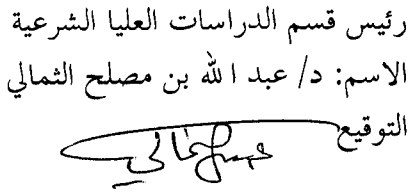 رئيس قسم الدراسات العليا الشرعية
الاسم: د/ عبد الله بن مصلح الثمالي
التوقيع